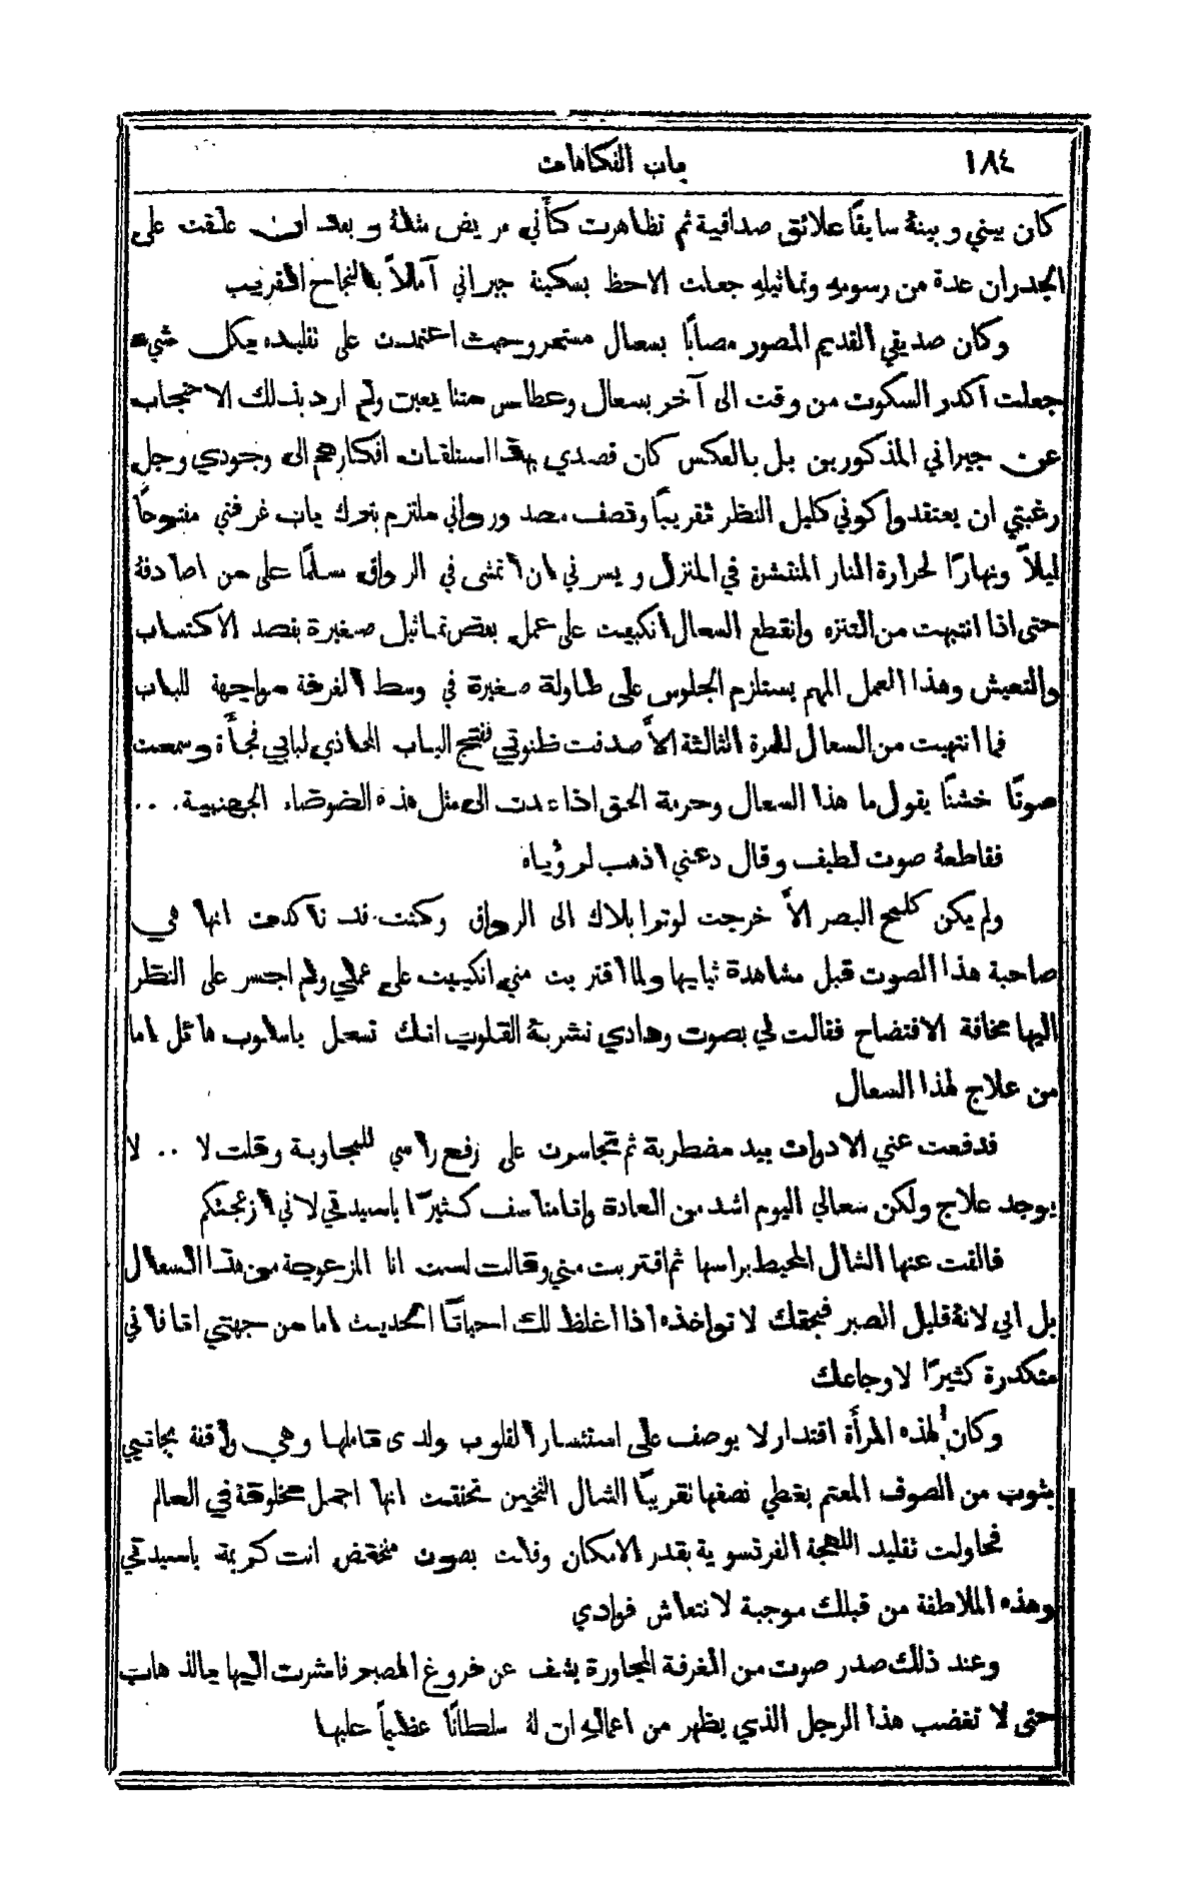 ١٨٤
باب الفكاهات
كان بيني وبينهُ سابقًا علائق صداقية ثم تظاهرت كأَني مريض مثلهُ وبعد ان علقت على
الجدران عدة من رسومهِ وتماثيلهِ جعلت الاحظ بسكينة جيراني آملاً بالنجاح القريب
وكان صديقي القديم المصور مصابًا بسعال مستمر وحيث اعتمدت على تقليده بكل شيء
جعلت اكدر السكوت من وقت الى آخر بسعال وعطاس متتابعين ولم ارد بذلك الاحتجاب
عن جيراني المذكورين بل بالعكس كان قصدي بهذا استلفات افكارهم الى وجودي وجل
رغبتي ان يعتقدوا كوني كليل النظر تقريبًا ونصف مصدور واني ملتزم بترك باب غرفتي مفتوحًا
ليلاً ونهارًا لحرارة النار المنتشرة في المنزل ويسرني ان اتمشى في الرواق مسلمًا على من اصادفهُ
حتى اذا انتهيت من التنزه وانقطع السعال انكببت على عمل بعض تماثيل صغيرة بقصد الاكتساب
والتعيش وهذا العمل المهم يستلزم الجلوس على طاولة صغيرة في وسط الغرفة مواجهة للباب
فما انتهيت من السعال للمرة الثالثة الاَّ صدقت ظنوني ففتح الباب المحاذي لبابي فجأَة وسمعت
صوتًا خشنًا يقول ما هذا السعال وحرمة الحق اذا عدت الى مثل هذه الضوضاء الجهنمية . . .
فقاطعهُ صوت لطيف وقال دعني اذهب لرؤياه
ولم يكن كلمح البصر الاَّ خرجت لوترا بلاك الى الرواق وكنت قد تأكدت انها هي
صاحبة هذا الصوت قبل مشاهدة ثيابها ولما اقتربت مني انكببت على عملي ولم اجسر على النظر
اليها مخافة الافتضاح فقالت لي بصوت ودادي تشربهُ القلوب انك تسعل باسلوب هائل اما
من علاج لهذا السعال
فدفعت عني الادوات بيد مضطربة ثم تجاسرت على رفع راسي للمجاوبة وقلت لا . . لا
يوجد علاج ولكن سعالي اليوم اشد من العادة وانا متاسف كثيرًا ياسيدتي لاني ازعجتكم
فالقت عنها الشال المحيط براسها ثم اقتربت مني وقالت لست انا المزعوجة من هذا السعال
بل ابي لانهُ قليل الصبر فبحقك لا تواخذه اذا اغلظ لك احيانًا الحديث اما من جهتي انا فاني
متكدرة كثيرًا لاوجاعك
وكان لهذه المرأَة اقتدار لا يوصف على استئسار القلوب ولدى تاملها وهي واقفة بجانبي
بثوب من الصوف المعتم يغطي نصفها تقريبًا الشال الثخين تحققت انها اجمل مخلوقة في العالم
فحاولت تقليد اللهجة الفرنسوية بقدر الامكان وقلت بصوت منخفض انت كريمة ياسيدتي
وهذه الملاطفة من قبلك موجبة لانتعاش فوادي
وعند ذلك صدر صوت من الغرفة المجاورة يشف عن فروغ الصبر فاشرت اليها بالذهاب
حتى لا تغضب هذا الرجل الذي يظهر من اعمالهِ ان لهُ سلطانًا عظيمًا عليها